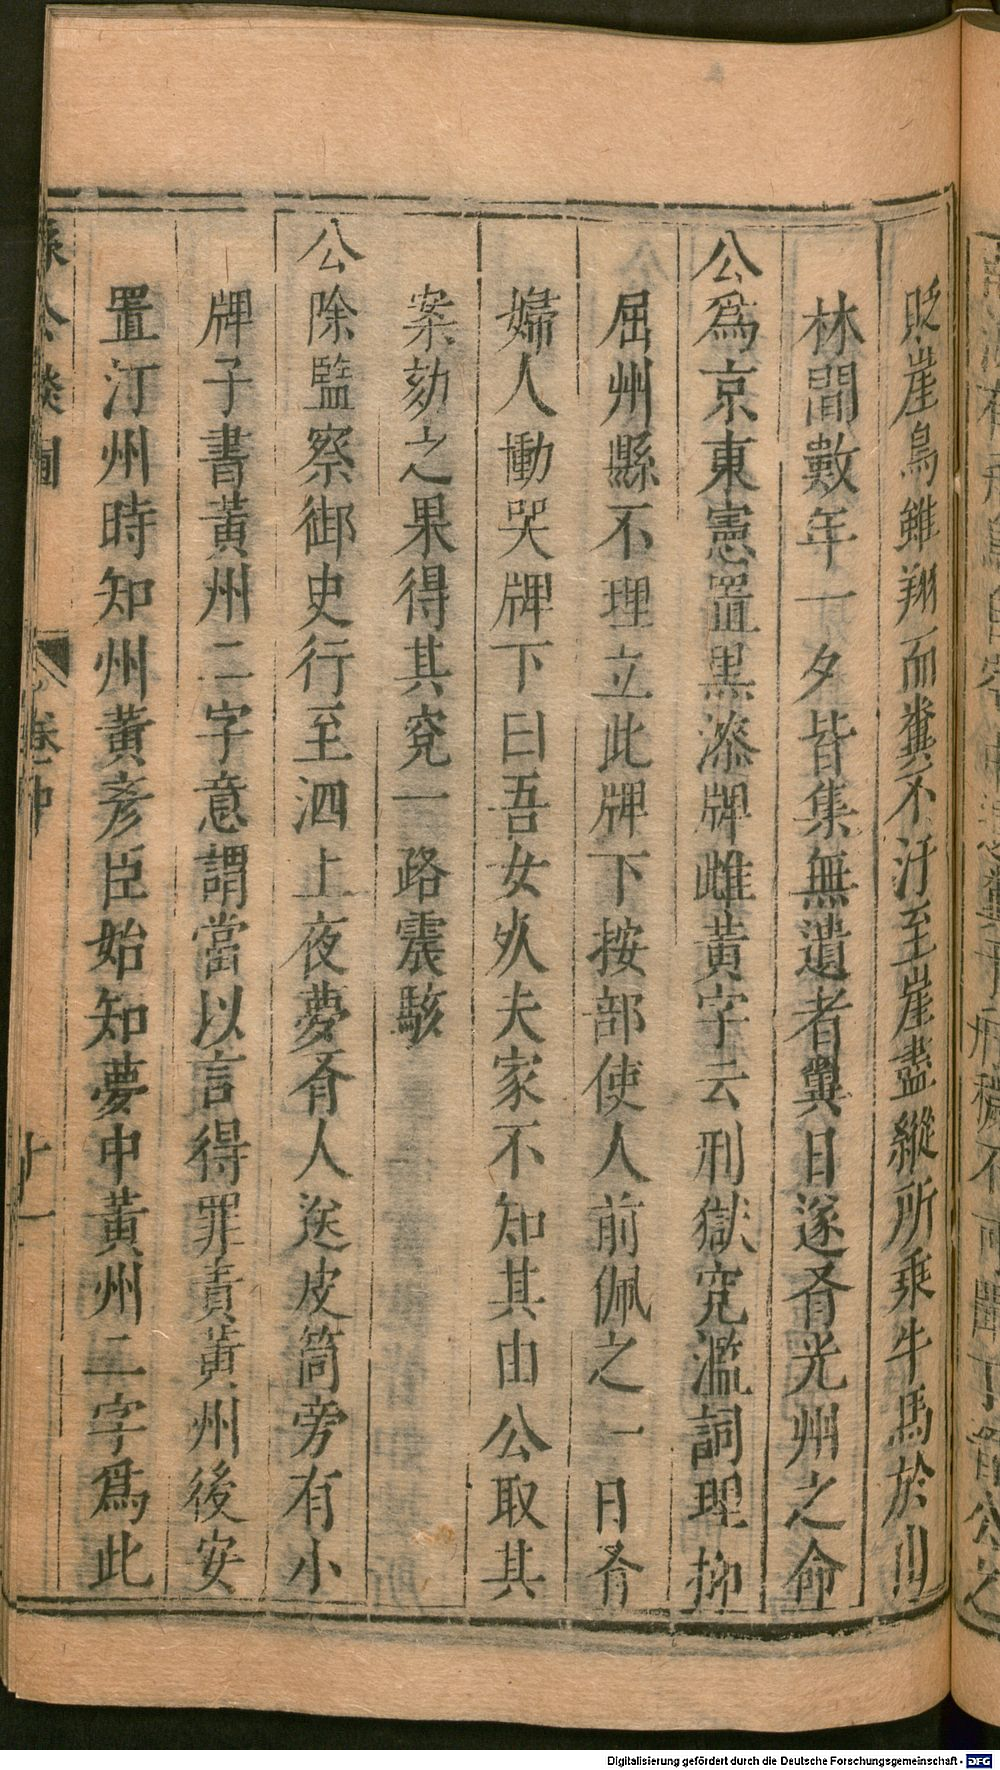 貶崖鳥雖翔而糞不汙至崖盡縱所乘牛馬於川
林間數年一夕皆集無遺者翼日遂有光州之命
公爲京東憲置黒漆牌雌黃字云刑獄寃濫詞理抑
屈州縣不理立此牌下按部使人前佩之一日有
婦人慟哭牌下曰吾女死夫家不知其由公取其
案劾之果得其寃一路震駭
公除監察御史行至泗上夜夢有人送皮筒旁有小
牌子書黃州二字意謂當以言得罪責黃州後安
置汀州時知州黃彥臣始知夢中黃州二字爲此
孫公談圃
卷中
十一
Digitalisierung gefördert durch die Deutsche Forschungsgemeinschaft - DFG